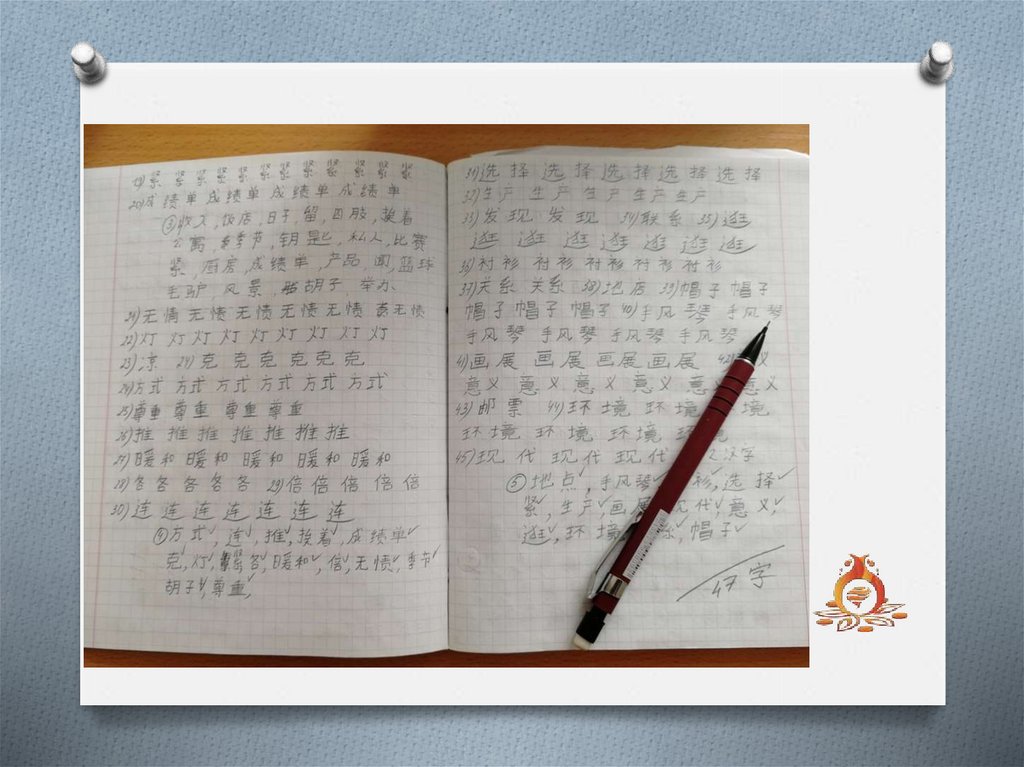 19) 紧 紧 紧 紧 紧 紧 紧 紧 紧 紧 紧 紧
20) 成绩单 成绩单 成绩单 成绩单
③ 收入, 饭店, 日子, 留, 四肢, 挨着
公寓, 季节, 钥匙, 私人, 比赛
紧, 厨房, 成绩单, 产品 闻, 篮球
毛驴 风景, 胡子 举办
21) 无愤 无愤 无愤 无愤 无愤 无愤
22) 灯 灯 灯 灯 灯 灯 灯 灯 灯
23) 凉 24) 克 克 克 克 克 克
24) 方式 方式 方式 方式 方式 方式
25) 尊重 尊重 尊重 尊重
26) 推 推 推 推 推 推 推
27) 暖和 暖和 暖和 暖和 暖和
28) 各 各 各 各 各 29) 倍 倍 倍 倍 倍
30) 连 连 连 连 连 连 连
④ 方式, 连, 推, 挨着, 成绩单
克, 灯, 紧 各, 暖和, 倍, 无愤, 季节
胡子, 尊重,
31) 选择 选择 选择 选择 选择
32) 生产 生产 生产 生产 生产
33) 发现 发现 34) 联系 35) 逛
逛 逛 逛 逛 逛 逛 逛
36) 衬衫 衬衫 衬衫 衬衫 衬衫
37) 关系 关系 38) 地店 39) 帽子 帽子
帽子 帽子 帽子 40) 手风琴 手风琴
手风琴 手风琴 手风琴 手风琴
41) 画展 画展 画展 画展 42) 义
意义 意义 意义 意义 意义 意义
43) 邮票 44) 环境 环境 境
环境 环境 环境
45) 现代 现代 现代 汉字
⑤ 地点, 手风琴 衫, 选择
紧, 生产, 画展 现代, 意义,
逛, 环境 系, 帽子
47 字